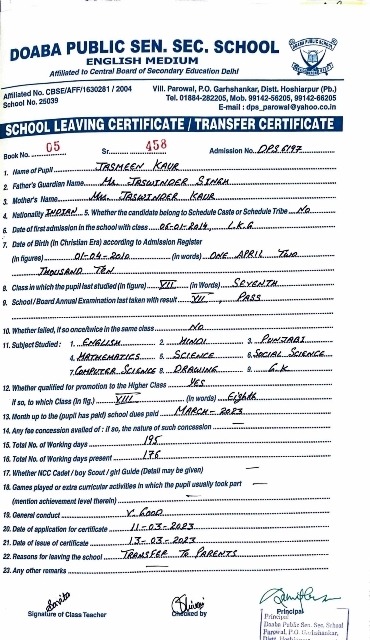 DOABA PUBLIC SEN. SEC. SCHOOL
ENGLISH MEDIUM
Affiliated to Central Board of Secondary Education Delhi
Affiliated No. CBSE/AFF/1630281 / 2004
School No. 25039
Vill. Parowal, P.O. Garhshankar, Distt. Hoshiarpur (Pb.)
Tel. 01884-282205, Mob. 99142-56205, 99142-66205
E-mail : dps_parowal@yahoo.co.in
SCHOOL LEAVING CERTIFICATE / TRANSFER CERTIFICATE
Book No. 05 Sr. 458 Admission No. DPS 6197
1. Name of Pupil JASMEEN KAUR
2. Father's Guardian Name Mr. JASWINDER SINGH
3. Mother's Name Mrs. JASWINDER KAUR
4. Nationality INDIAN 5. Whether the candidate belong to Schedule Caste or Schedule Tribe NO
6. Date of first admission in the school with class 06-01-2014, L.K.G
7. Date of Birth (In Christian Era) according to Admission Register
(In figures) 01-04-2010 (in words) ONE APRIL TWO
THOUSAND TEN
8. Class in which the pupil last studied (In figure) VII (in Words) SEVENTH
9. School / Board Annual Examination last taken with result VII, PASS
10. Whether failed, if so once/twice in the same class NO
11. Subject Studied : 1. ENGLISH 2. HINDI 3. PUNJABI
4. MATHEMATICS 5. SCIENCE 6. SOCIAL SCIENCE
7. COMPUTER SCIENCE 8. DRAWING 9. G.K
12. Whether qualified for promotion to the Higher Class YES
if so, to which Class (in fig.) VIII (in words) Eighth
13. Month up to the (pupil has paid) school dues paid MARCH-2023
14. Any fee concession availed of : if so, the nature of such concession —
15. Total No. of Working days 195
16. Total No. of Working days present 176
17. Whether NCC Cadet / boy Scout / girl Guide (Detail may be given) —
18. Games played or extra curricular activities in which the pupil usually took part
(mention achievement level therein) —
19. General conduct V. GOOD
20. Date of application for certificate 11-03-2023
21. Date of issue of certificate 13-03-2023
22. Reasons for leaving the school TRANSFER TO PARENTS
23. Any other remarks —
Signature of Class Teacher
Checked by
Principal
Principal
Doaba Public Sen. Sec. School
Parowal, P.O. Garhshankar,
Distt. Hoshiarpur